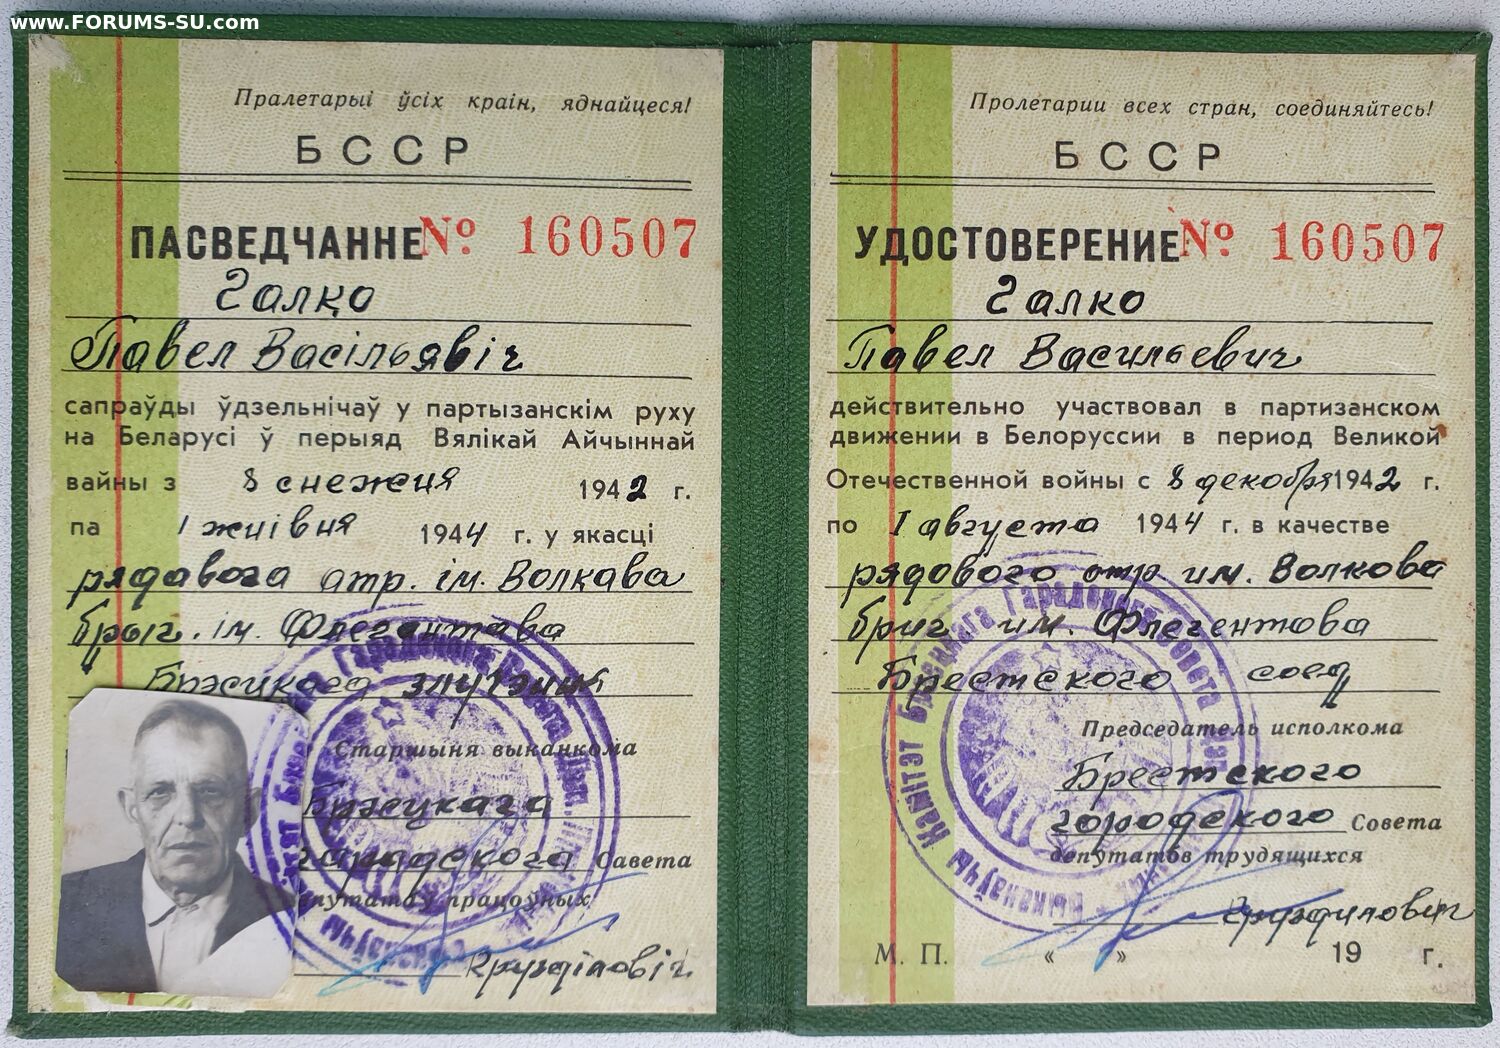 www.FORUMS-SU.com
Пралетарыі ўсіх краін, яднайцеся!
БССР
ПАСВЕДЧАННЕ № 160507
Галко
Павел Васільявіч
сапраўды ўдзельнічаў у партызанскім руху
на Беларусі ў перыяд Вялікай Айчыннай
вайны з 8 снежня 1942 г.
па 1 жніўня 1944 г. у якасці
рядавога атр. ім. Волкава
брыг. ім. Флегантава
Брэсцкаго злучэння
Старшыня выканкома
Брэсцкага
гарадскога Савета
дэпутатаў працоўных
Грузділовіч
Пролетарии всех стран, соединяйтесь!
БССР
УДОСТОВЕРЕНИЕ № 160507
Галко
Павел Васильевич
действительно участвовал в партизанском
движении в Белоруссии в период Великой
Отечественной войны с 8 декабря 1942 г.
по 1 августа 1944 г. в качестве
рядового отр им. Волкова
бриг. им. Флегентова
Брестского соед
Председатель исполкома
Брестского
городского Совета
депутатов трудящихся
Груздилович
М. П. « » 19 г.
Выканаўчы Камітэт Гарадскога Савета